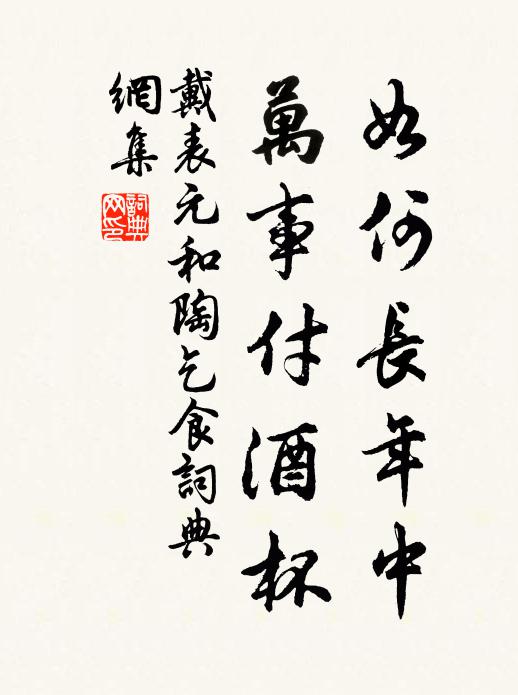 如何長年中
萬事付酒杯
戴表元和陶乞食詞典
網集
詞典
网印